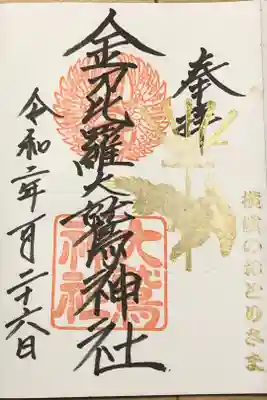 奉拝
金刀比羅大鷲神社
大鷲神社
令和二年一月二十六日
横濱のおとりさま